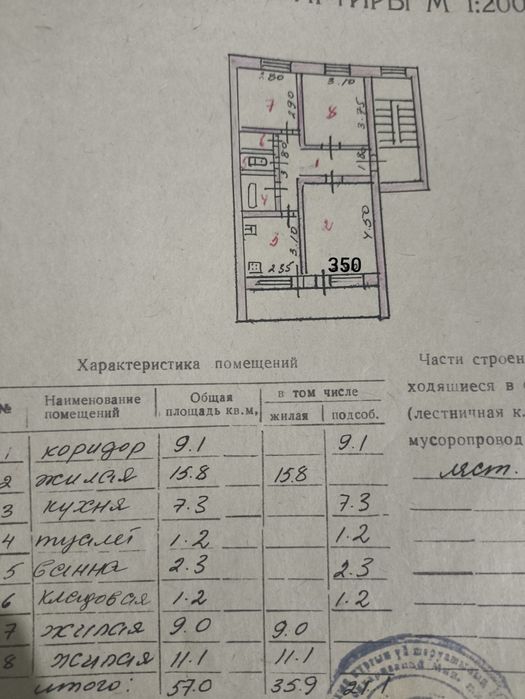 АРТИРЫ М 1:200
2.80
3.10
7
2.90
8
3.75
6
5
3.80
1
1.80
4
3
3.10
2
4.50
2.35
350
Характеристика помещений
Части строен
№
Наименование помещений
Общая площадь кв.м,
в том числе
жилая
подсоб.
ходящиеся в
(лестничная кл
мусоропровод
лест.
1 коридор 9.1 9.1
2 жилая 15.8 15.8
3 кухня 7.3 7.3
4 туалет 1.2 1.2
5 ванна 2.3 2.3
6 кладовая 1.2 1.2
7 жилая 9.0 9.0
8 жилая 11.1 11.1
итого: 57.0 35.9 21.1